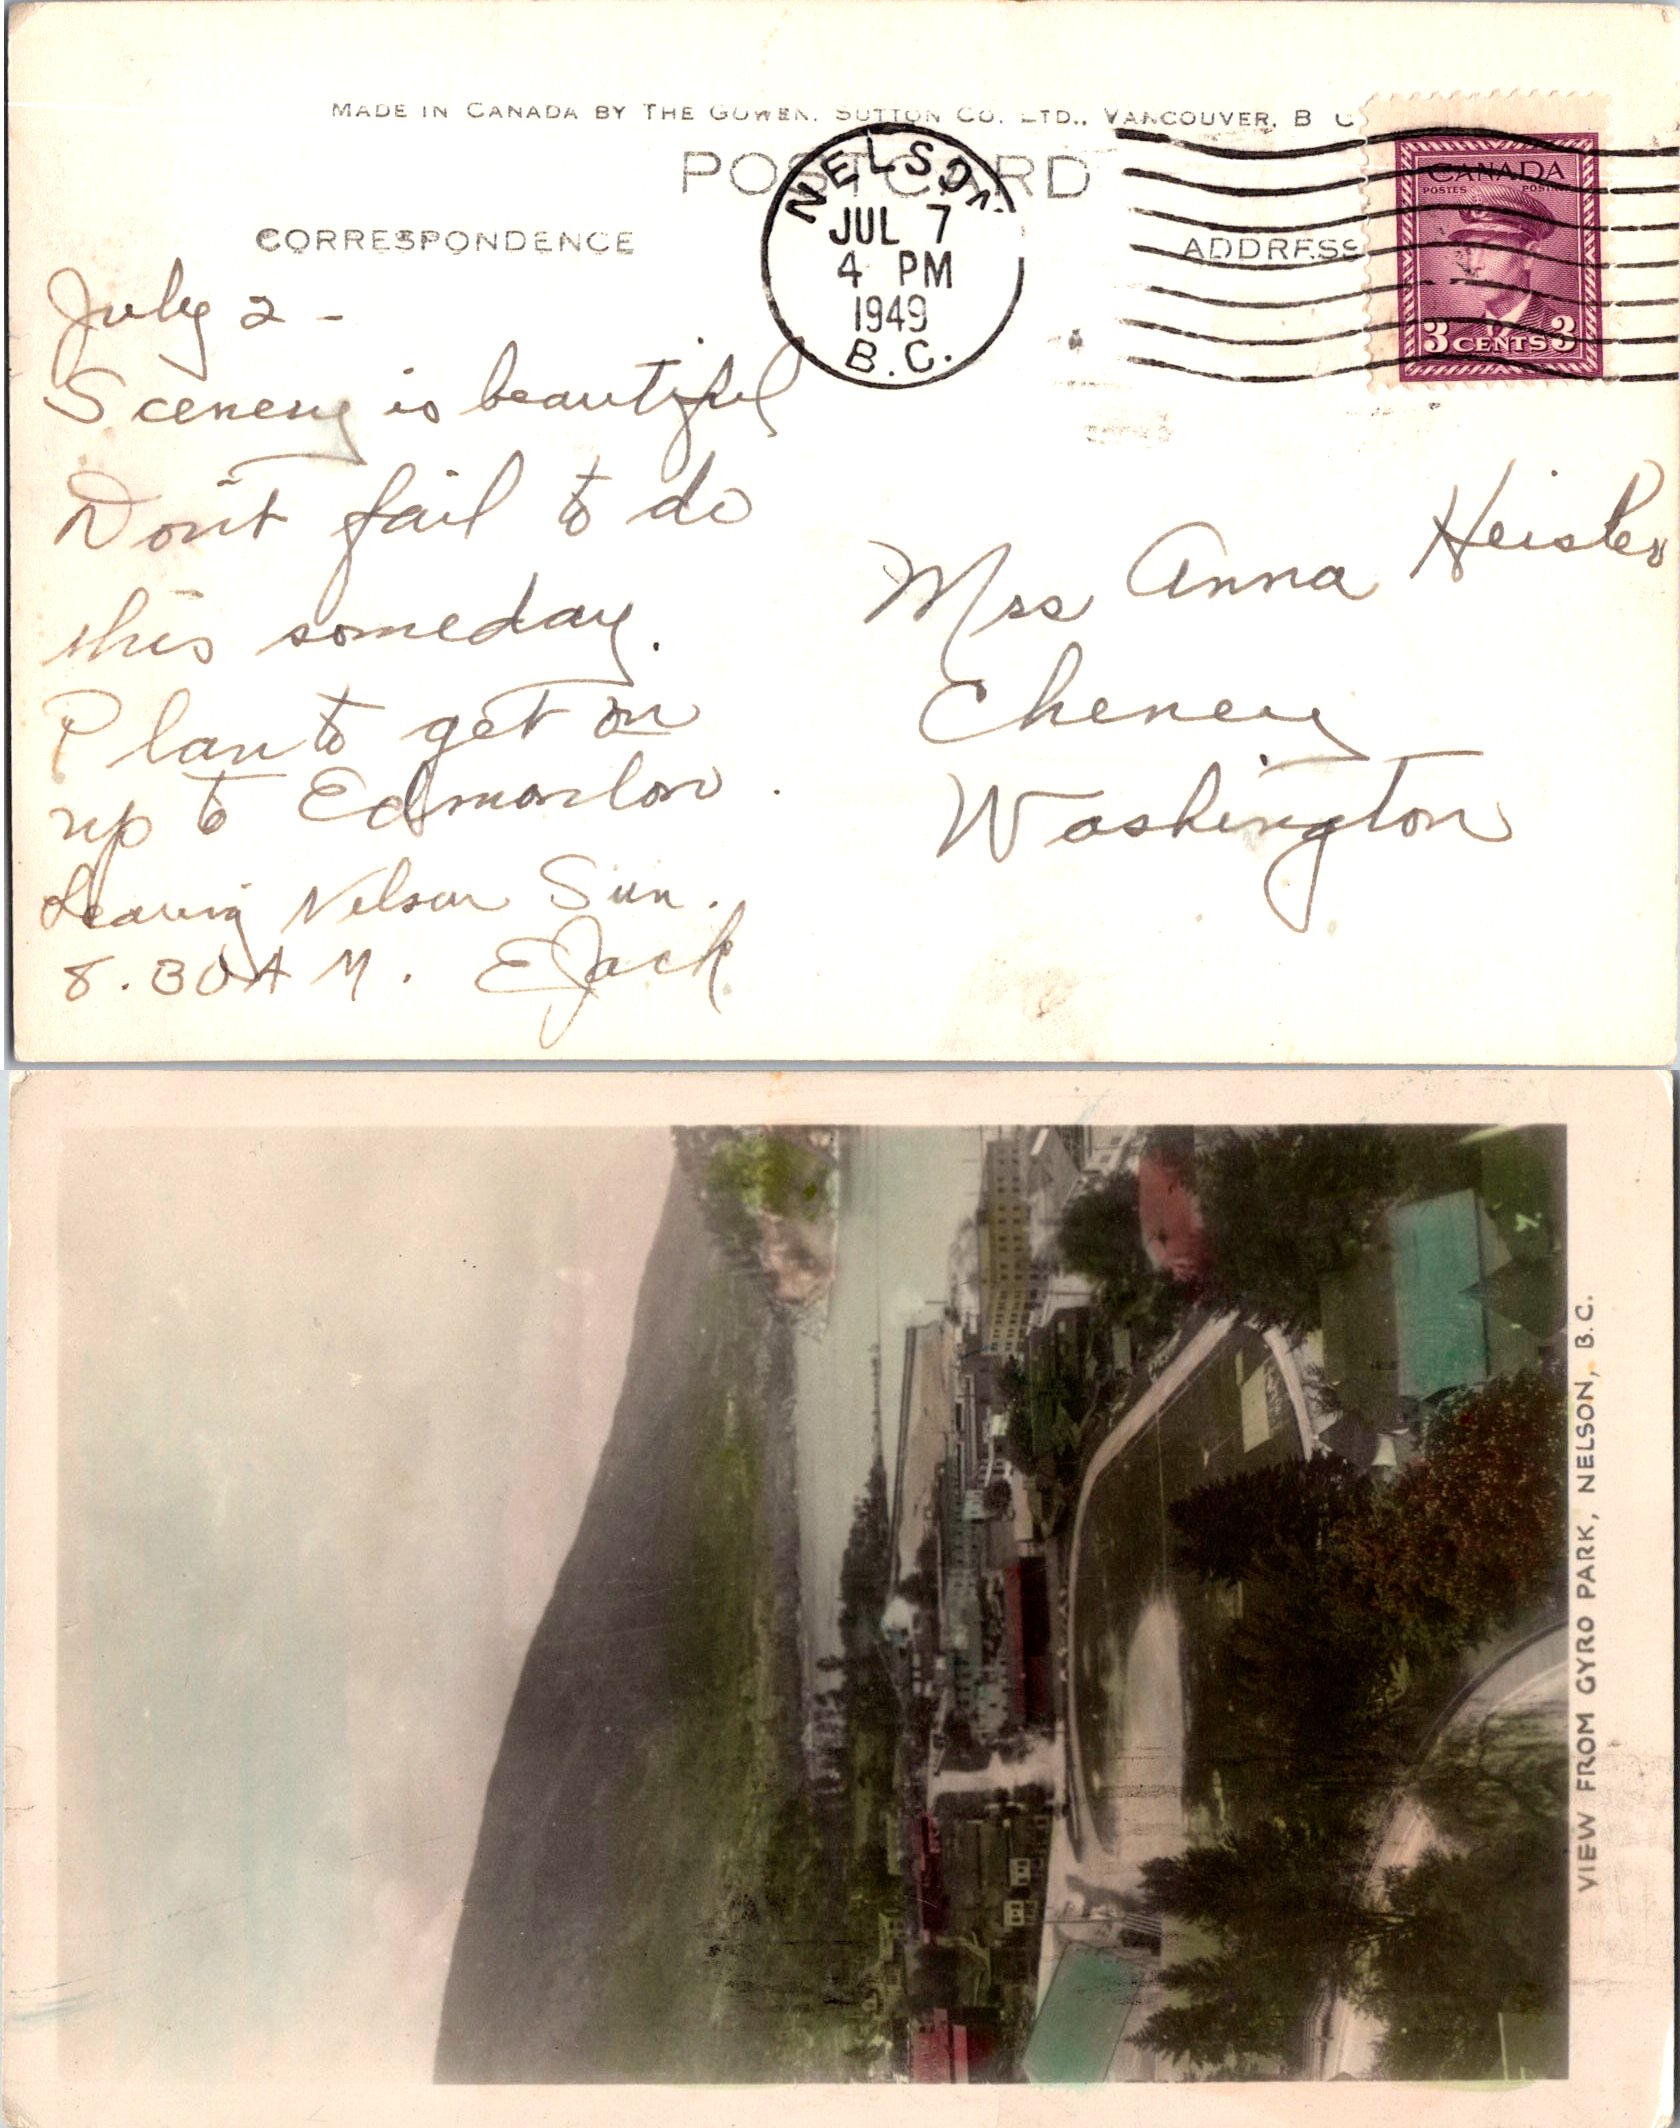 MADE IN CANADA BY THE GOWEN, SUTTON CO. LTD., VANCOUVER, B C
POST CARD
CORRESPONDENCE
ADDRESS
NELSON
JUL 7
4 PM
1949
B.C.
CANADA
POSTES POSTAGE
3 CENTS 3
July 2 -
Scenery is beautiful
Don't fail to do
this someday.
Plan to get on
up to Edmonton.
Leaving Nelson Sun.
8.30 A M. EJack
Mrs Anna Heisler
Cheney
Washington
VIEW FROM GYRO PARK, NELSON, B.C.